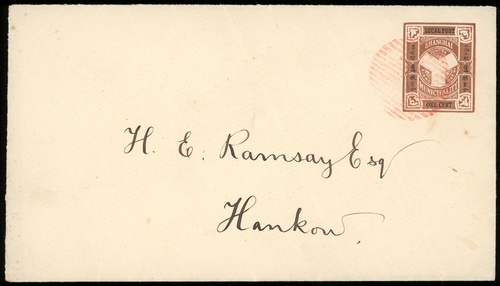 LOCAL POST
SHANGHAI
MUNICIPALITY
1 1
ONE CENT
H. E. Ramsay Esq
Hankow.